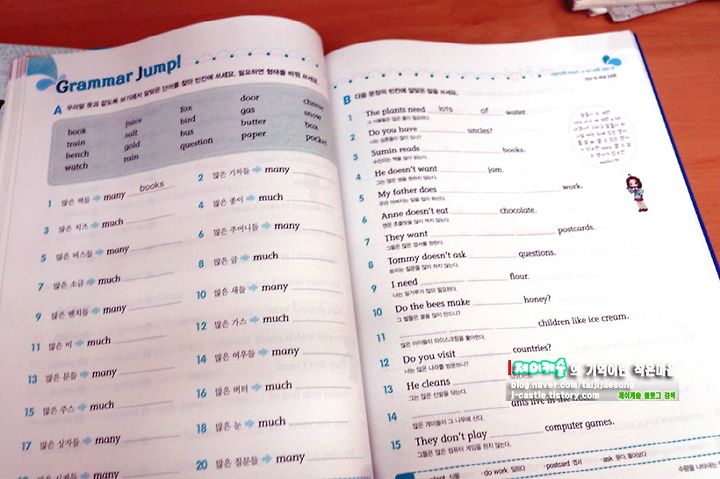 Grammar Jump!
A 우리말 뜻과 같도록 보기에서 알맞은 단어를 찾아 빈칸에 쓰세요. 필요하면 형태를 바꿔 쓰세요.
book juice fox door cheese
train salt bird gas snow
bench gold bus butter box
watch rain question paper pocket
1 많은 책들 many books
2 많은 기차들 many
3 많은 치즈 much
4 많은 종이 much
5 많은 버스들 many
6 많은 주머니들 many
7 많은 소금 much
8 많은 금 much
9 많은 벤치들 many
10 많은 새들 many
11 많은 비 much
12 많은 가스 much
13 많은 문들 many
14 많은 여우들 many
15 많은 주스 much
16 많은 버터 much
17 많은 상자들 many
18 많은 눈 much
20 많은 질문들 many
B 다음 문장의 빈칸에 알맞은 말을 쓰세요.
1 The plants need lots of water.
그 식물들은 많은 물이 필요하다.
2 Do you have uncles?
너는 삼촌들이 많이 있니?
3 Sumin reads books.
수민이는 책을 많이 읽는다.
4 He doesn't want jam.
그는 많은 잼을 원하지 않는다.
5 My father does work.
우리 아버지는 일을 많이 하신다.
6 Anne doesn't eat chocolate.
앤은 초콜릿을 많이 먹지 않는다.
7 They want postcards.
그들은 많은 엽서를 원한다.
8 Tommy doesn't ask questions.
토미는 질문을 많이 하지 않는다.
9 I need flour.
나는 밀가루가 많이 필요하다.
10 Do the bees make honey?
그 벌들은 꿀을 많이 만드니?
11 children like ice cream.
많은 아이들이 아이스크림을 좋아한다.
12 Do you visit countries?
너는 많은 나라를 방문하니?
13 He cleans
그는 많은 신발을 닦는다.
14 ants live in the
많은 개미들이 그 나무에 산다.
15 They don't play computer games.
그들은 많은 컴퓨터 게임을 하지 않는다.
plant 식물 · do work 일하다 · postcard 엽서 · ask 묻다, 물어보다
제이캐슬 's 기억이는 작은마을
blog.naver.com/taijijaesung
j-castle.tistory.com 제이캐슬 블로그 검색